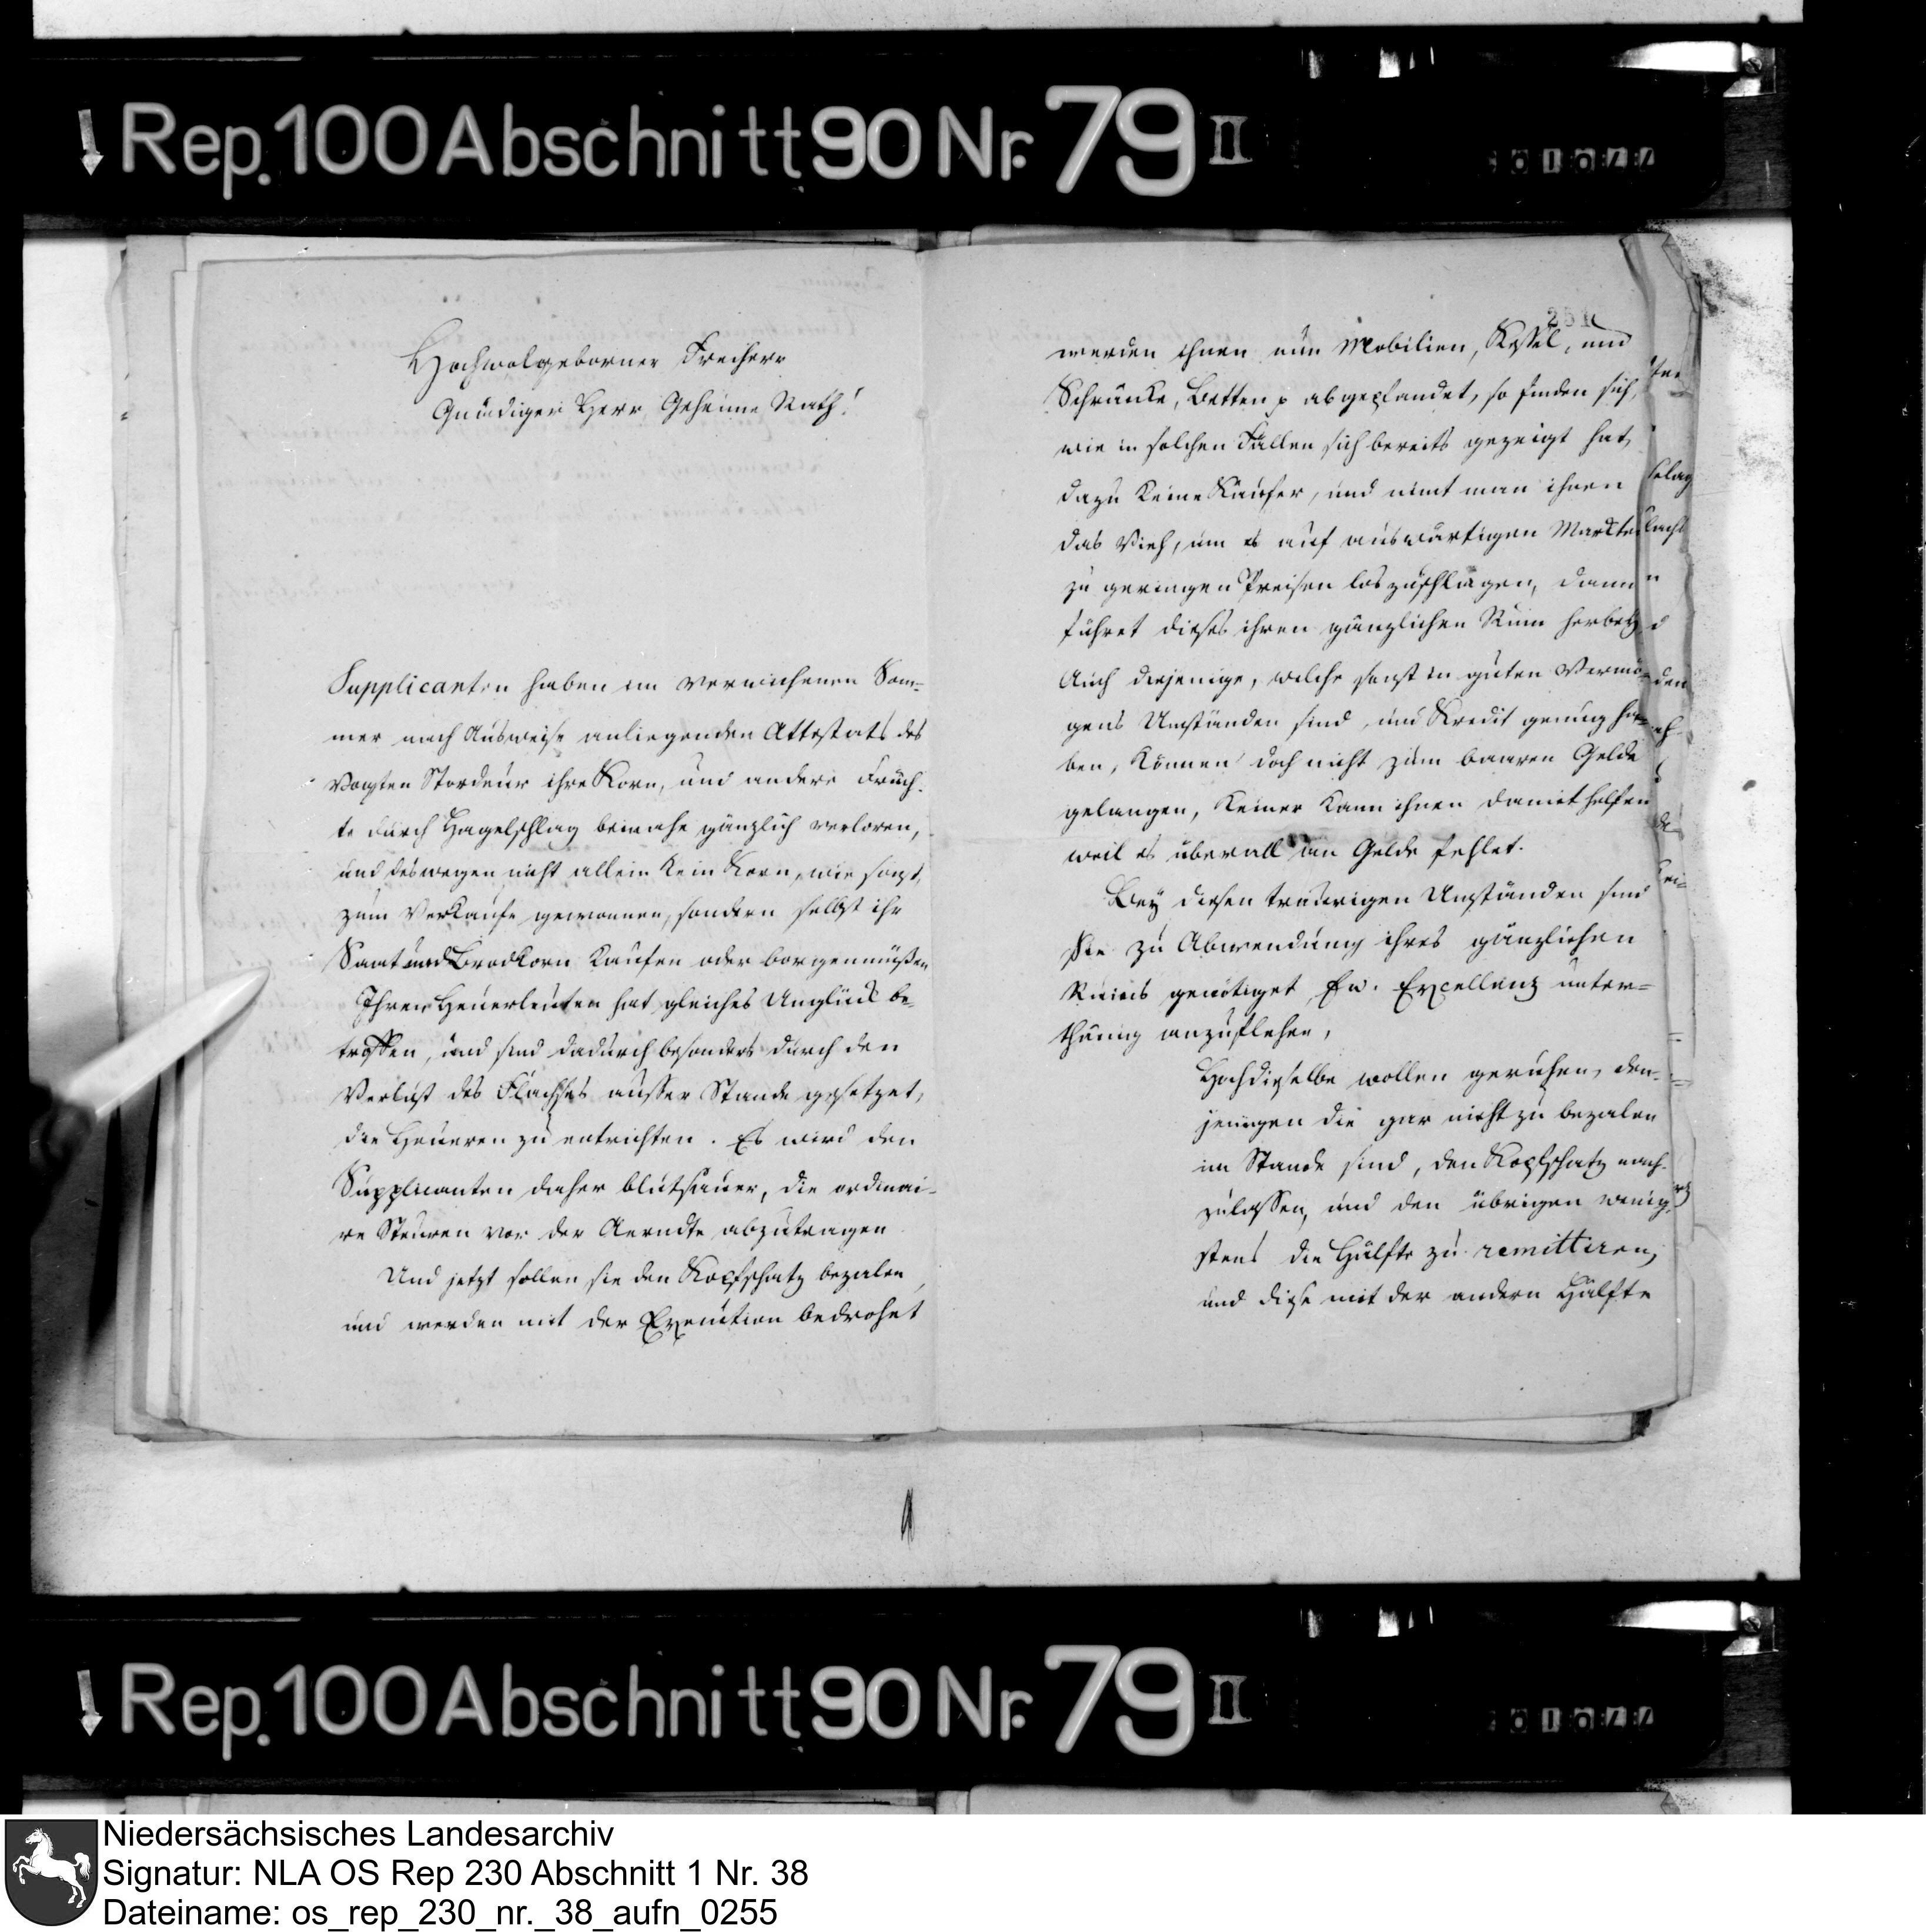 Rep. 100 Abschnitt 90 Nr. 79 II
Hochwolgeborner Freiherr
Gnädiger Herr Geheime Rath!
Supplicanten haben im verwichenen Som-
mer nach Ausweise anliegenden Attestats des
Vogten Stordeur ihre Korn, und andere Früch-
te durch Hagelschlag beinahe gänzlich verloren,
und deswegen nicht allein kein Korn, wie sonst,
zum Verkaufe gewonnen, sondern selbst ihr
Saat und Brodkorn kaufen oder borgen müßen
Ihren Heuerleuten hat gleiches Unglück be-
troffen, und sind dadurch besonders durch den
Verlust des Flachses ausser Stande gesetzet,
die Heueren zu entrichten. Es wird den
Supplicanten daher blutsauer, die ordinai-
re Steuren vor der Aerndte abzutragen
Und jetzt sollen sie den Kopfschatz bezalen,
und werden mit der Execution bedrohet
251
werden ihnen nun Mobilien, Kessel, und
Schränke, Betten p abgepfandet, so finden sich,
wie in solchen Fällen sich bereits gezeigt hat,
dazu keine Käufer, und nimt man ihnen
das Vieh, um es auf auswärtigen Markte
zu geringen Preisen loszuschlagen, dann
führet dieses ihren gänzlichen Ruin herbey
Auch diejenige, welche sonst in guten Vermö-
gens Umständen sind, und Kredit genug ha-
ben, können doch nicht zum baaren Gelde
gelangen, keiner kann ihnen damit helfen
weil es überall an Gelde fehlet.
Bey diesen traurigen Umständen sind
Sie zu Abwendung ihres gänzlichen
Ruines genötiget Ew. Excellenz unter-
thänig anzuflehen,
Hochdieselbe wollen geruhen, den-
jenigen die gar nicht zu bezalen
im Stande sind, den Kopfschatz nach-
zulassen, und den übrigen wenig-
stens die Hälfte zu remittiren,
und diese mit der andern Hälfte
Rep. 100 Abschnitt 90 Nr. 79 II
Niedersächsisches Landesarchiv
Signatur: NLA OS Rep 230 Abschnitt 1 Nr. 38
Dateiname: os_rep_230_nr._38_aufn_0255